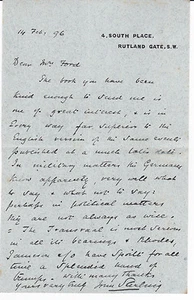 4, SOUTH PLACE,
RUTLAND GATE, S.W.
14 Feb, 96
Dear Mrs Ford
The book you have been
kind enough to send me is
one of great interest, & is in
every way far superior to the
English version of the same work
published at a much later date.
In military matters the Germans
know apparently very well what
to say & what not to say:
perhaps in political matters
they are not always as wise.
The Transvaal is most serious
in all its bearings & Rhodes,
Jameson & Co have spoilt for all
time a splendid hand of
trumps. With many thanks
Yours very truly John